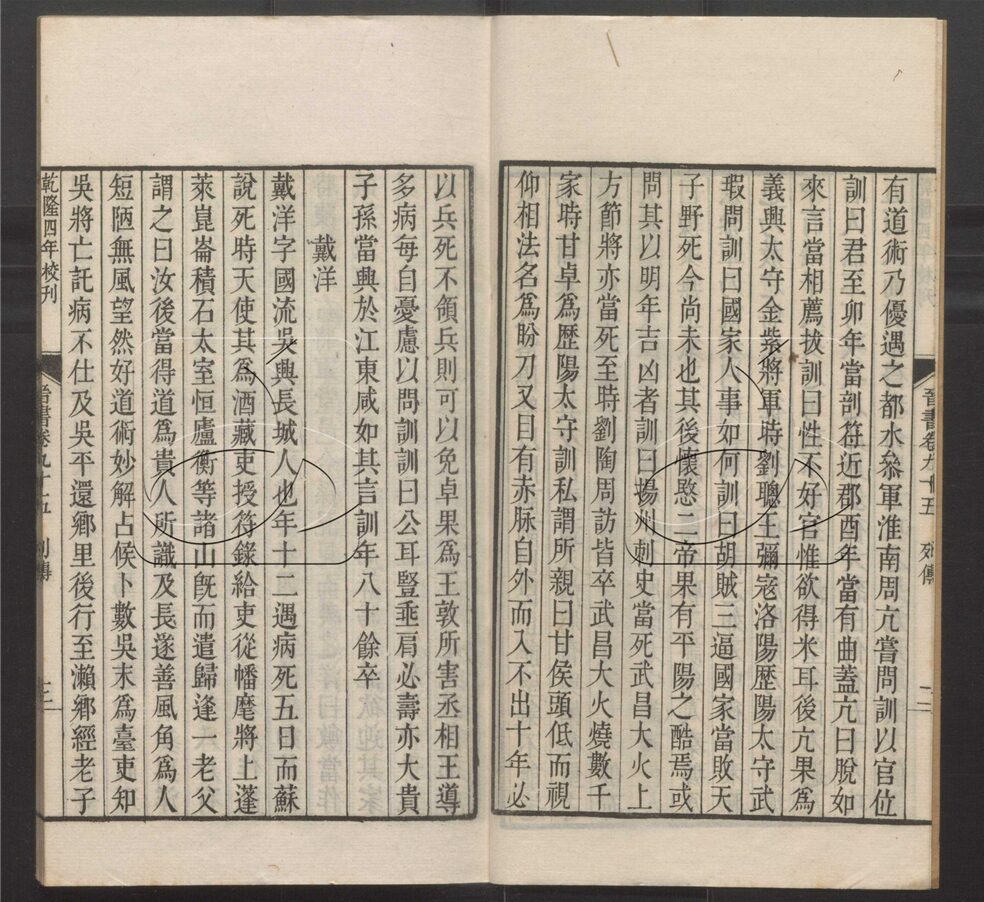 有道術乃優遇之都水叅軍淮南周亢嘗問訓以官位
訓曰君至卯年當剖符近郡酉年當有曲蓋亢曰脫如
來言當相薦拔訓曰性不好官惟欲得米耳後亢果爲
義興太守金紫將軍時劉聰王彌寇洛陽歷陽太守武
瑕問訓曰國家人事如何訓曰胡賊三逼國家當敗天
子野死今尚未也其後懷愍二帝果有平陽之酷焉或
問其以明年吉凶者訓曰揚州刺史當死武昌大火上
方節將亦當死至時劉陶周訪皆卒武昌大火燒數千
家時甘卓爲歷陽太守訓私謂所親曰甘侯頭低而視
仰相法名爲盼刀又目有赤脉自外而入不出十年必
晉書卷九十五 列傳 二
以兵死不領兵則可以免卓果爲王敦所害丞相王導
多病每自憂慮以問訓訓曰公耳豎垂肩必壽亦大貴
子孫當興於江東咸如其言訓年八十餘卒
戴洋
戴洋字國流吳興長城人也年十二遇病死五日而蘇
說死時天使其爲酒藏吏授符錄給吏從幡麾將上蓬
萊崑崙積石太室恒廬衡等諸山旣而遣歸逢一老父
謂之曰汝後當得道爲貴人所識及長遂善風角爲人
短陋無風望然好道術妙解占候卜數吳末爲臺吏知
吳將亡託病不仕及吳平還鄉里後行至瀨鄉經老子
乾隆四年校刊
晉書卷九十五 列傳 三